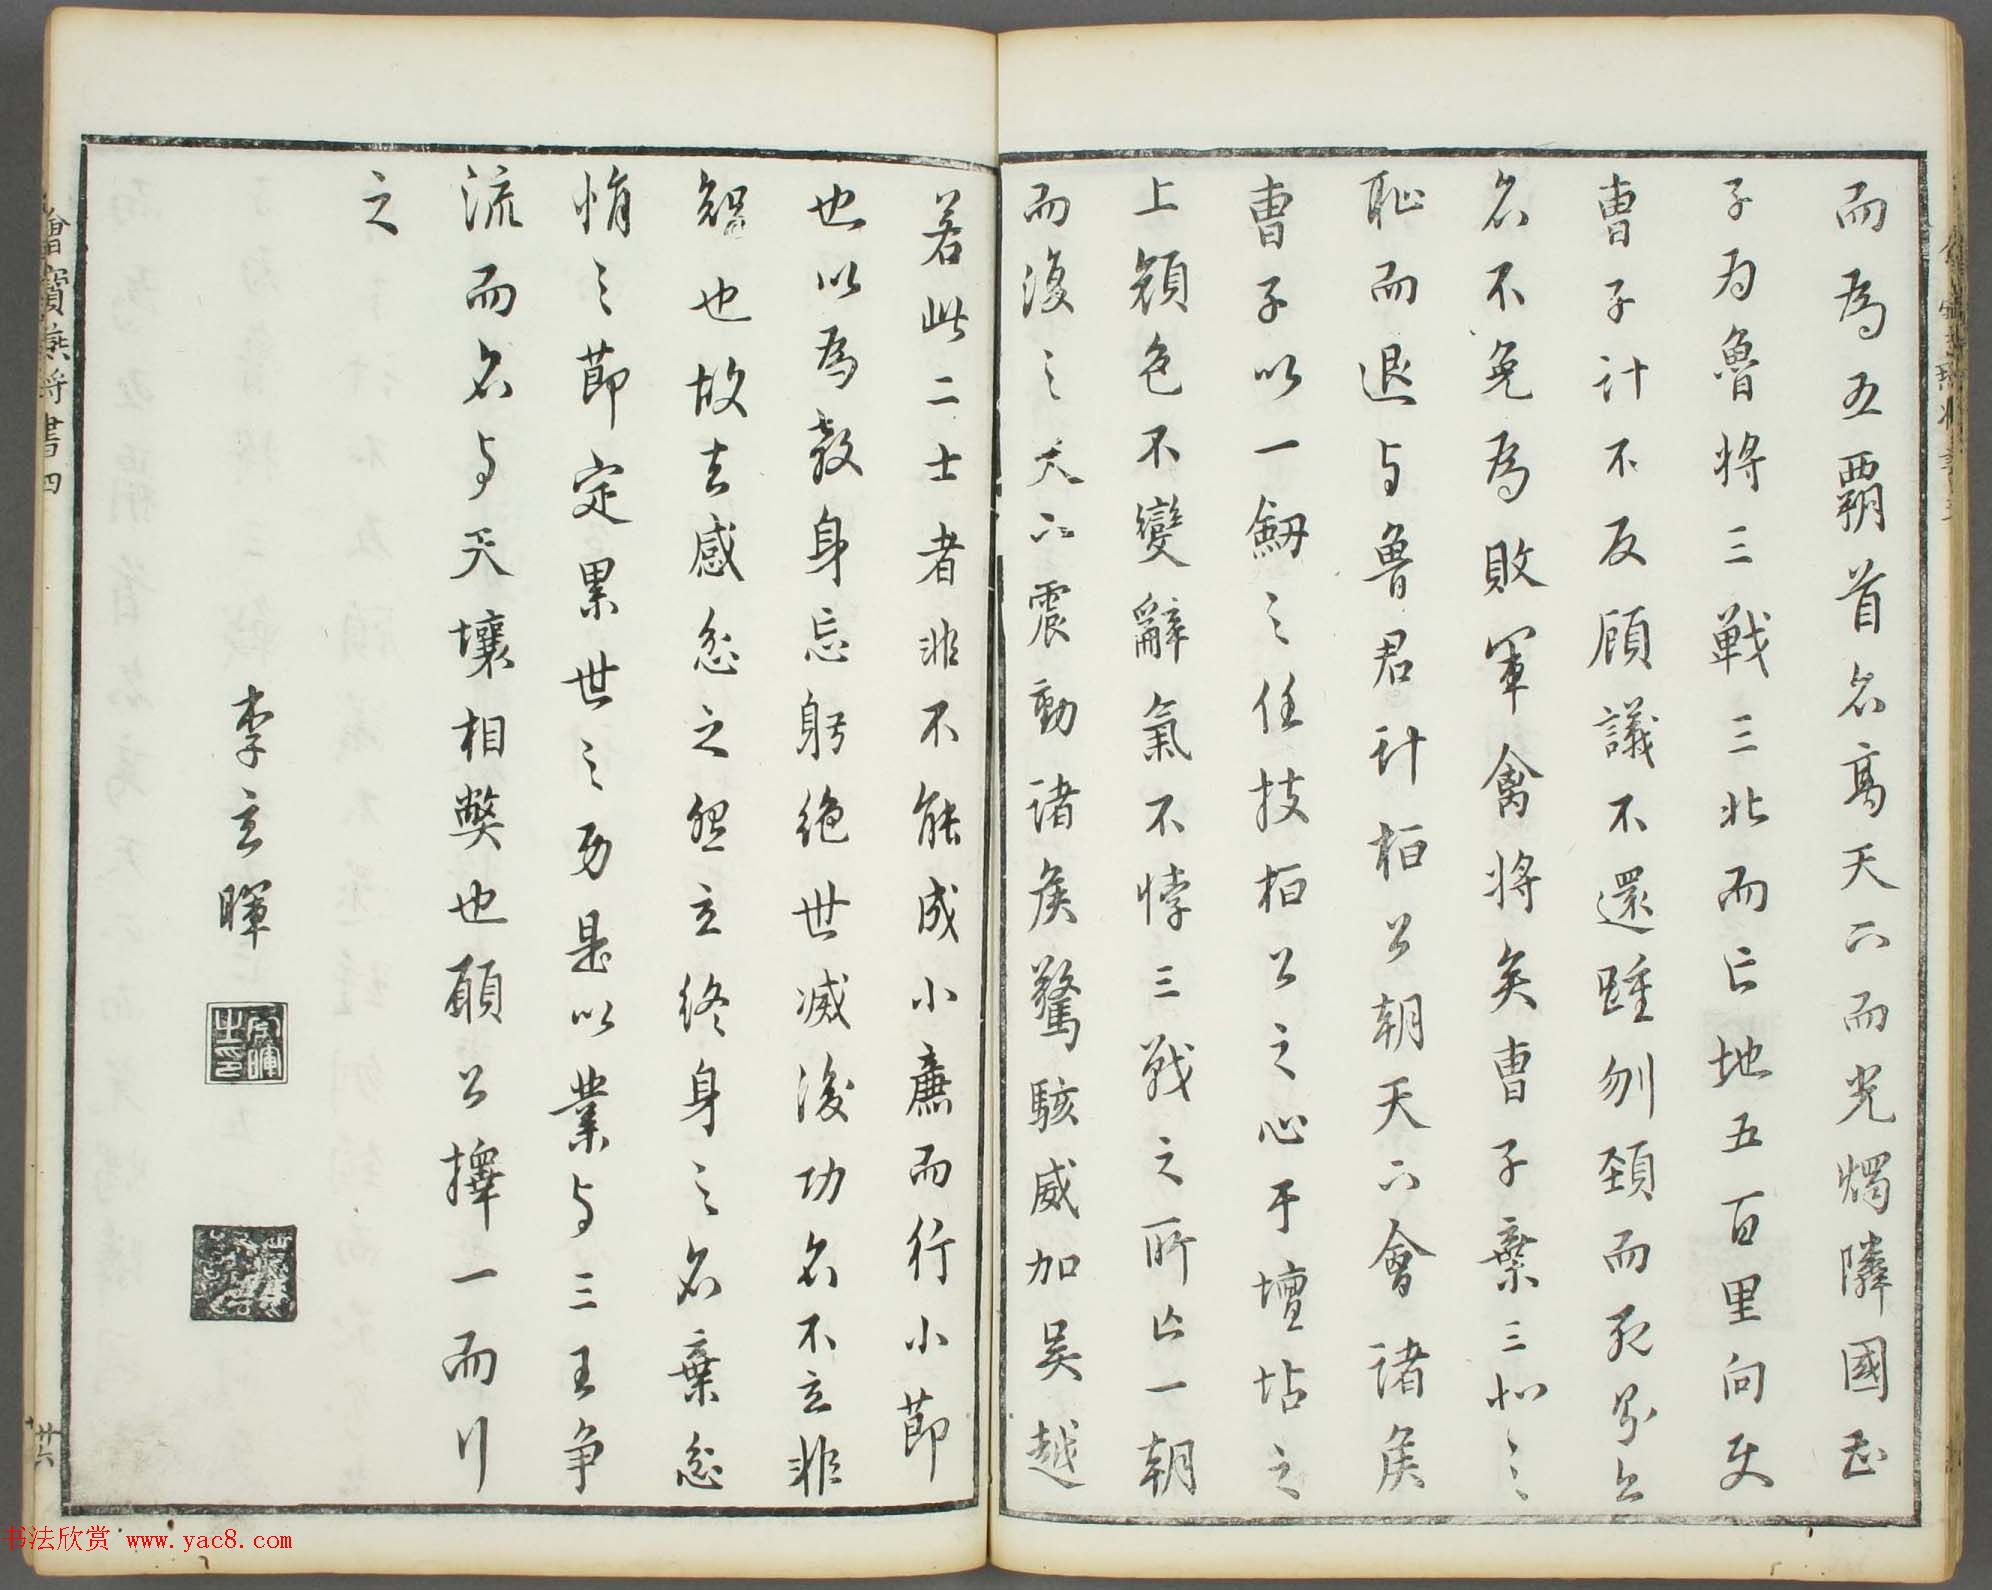 而為五覇首名高天下而光燭隣國曹
子为魯将三戦三北而亡地五百里向使
曹子計不反顧議不還踵刎頚而死則亦
名不免為敗軍禽将矣曹子棄三北之
恥而退与魯君計桓公朝天下會諸侯
曹子以一劒之任技桓公之心于壇坫之
上顔色不變辭氣不悖三戦之所亡一朝
而復之天下震動諸侯驚駭威加吴越
若此二士者非不能成小廉而行小節
也以為殺身忘躬絶世滅後功名不立非
智也故去感忿之怨立終身之名棄忿
悁之節定累世之功是以業与三王争
流而名与天壤相獘也願公擇一而行
之
李玄暉
玄暉之印
遺燕将書四
廿六
书法欣赏 www.yac8.com